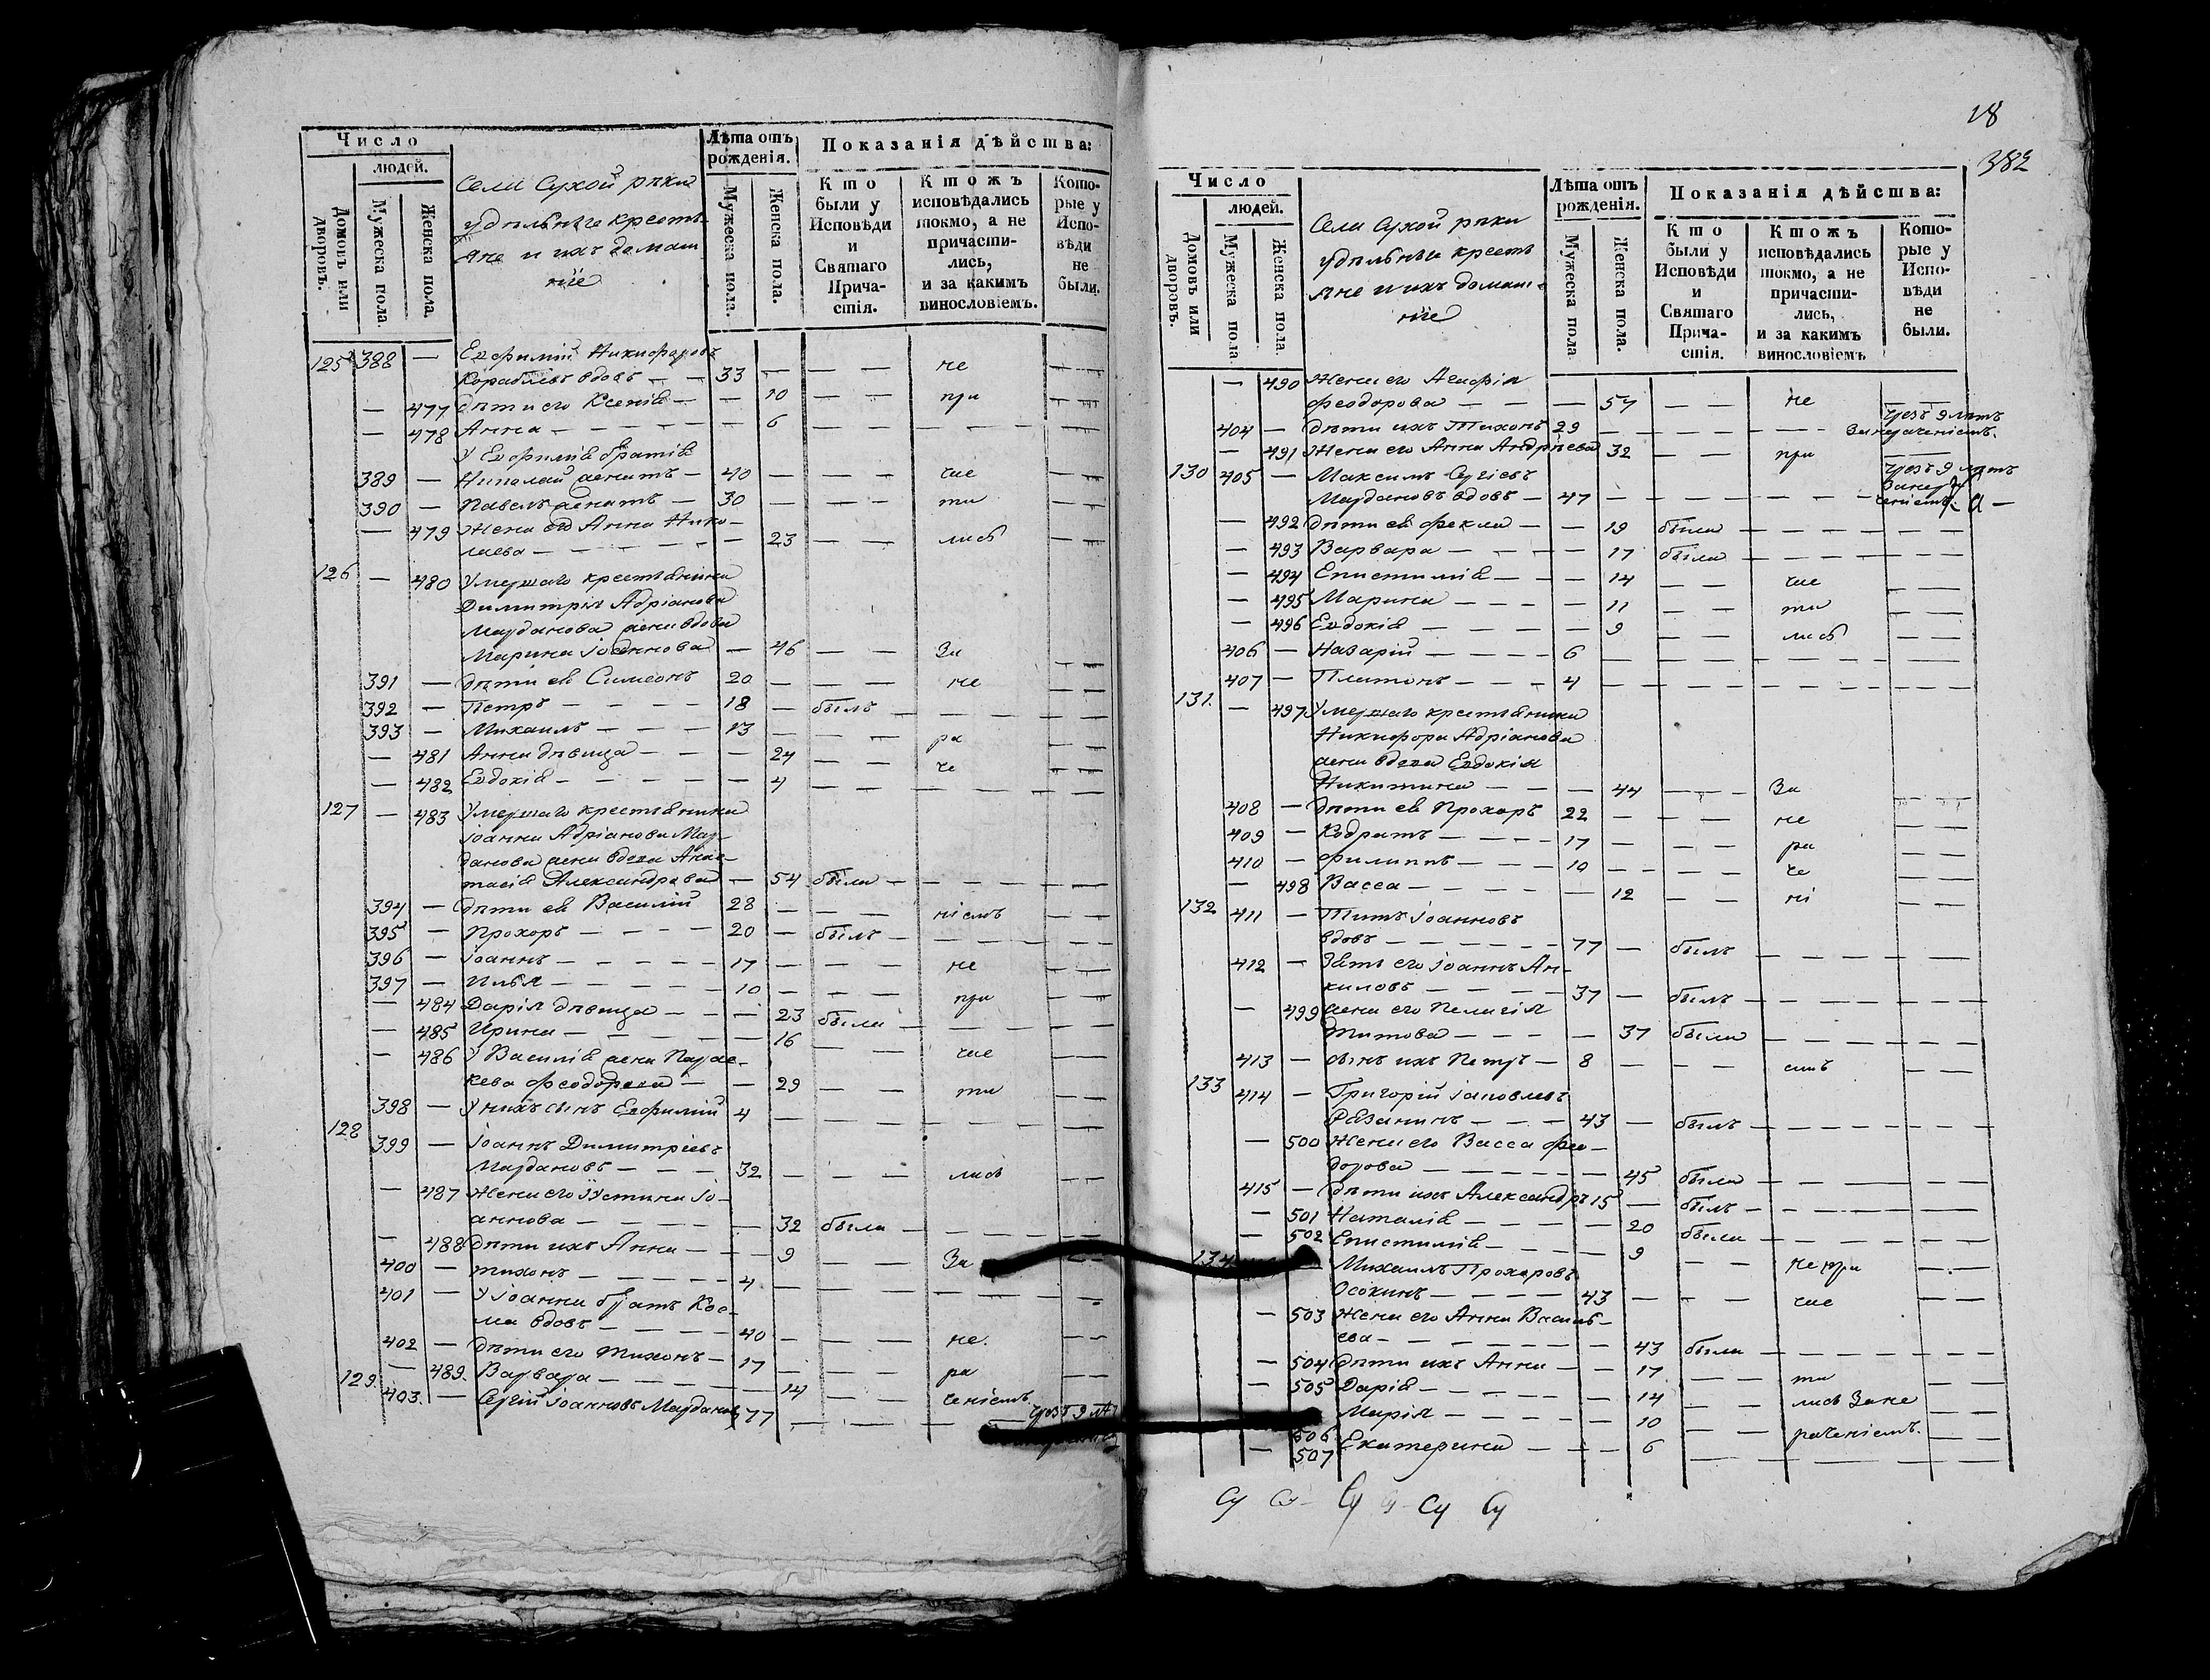 Число
людей.
Домовъ или дворовъ.
Мужеска пола
Женска пола.
Села Сухой рѣки
удѣльные кресть-
яне и ихъ домаш
ніе
Лѣта отъ рожденія.
Мужеска пола.
Женска пола.
Показанія дѣйства:
Кто были у Исповѣди и Святаго Причастія.
Ктожъ исповѣдались токмо, а не причастились, и за какимъ винословіемъ.
Которые у Исповѣди не были.
125 388 — Евфимій Никифоровъ
Кораблевъ вдовъ — — 33 — — — не — —
— 477 Дѣти его Ксенія — — 10 — — при — —
— 478 Анна — — — — — — 6 — — — — — —
У Евфимія братія
389 — Николай женатъ — 40 — — — чае — —
390 — Павелъ женатъ — 30 — — — ти — —
— 479 Жена его Анна Нико-
лаева — — — — — — 23 — — лись — —
126 — 480 Умершаго крестьянина
Димитрія Адріанова
Марданова жена вдова
Марина Іоаннова — 46 — — За — —
391 — Дѣти ея Симеонъ 20 — — — не — —
392 — Петръ — — — — 18 — былъ — — — — —
393 — Михаилъ — — — 13 — — — ра — —
— 481 Анна дѣвица — — — 24 — — че — —
— 482 Евдокія — — — — — 4 — — — — — — —
127 — 483 Умершаго крестьянина
Іоанна Адріанова Мар-
данова жена вдова Анас-
тасія Александрова — 54 была — — — — — —
394 — Дѣти ея Василій 28 — — — ніемъ — —
395 — Прохоръ — — — — 20 — былъ — — — — —
396 — Іоаннъ — — — — — 17 — — — не — —
397 — Илья — — — — — — 10 — — — при — —
— 484 Дарія дѣвица — — — 23 была — — — — —
— 485 Ирина — — — — — 16 — — чае — —
— 486 У Василія жена Парас-
кева Феодорова — — 29 — — ти — —
398 — У нихъ сынъ Евфимій 4 — — — — — — —
128 399 — Іоаннъ Димитріевъ
Мардановъ — — — 32 — — — лись — —
— 487 Жена его Устина Іо-
аннова — — — — — 32 была — — — — —
— 488 Дѣти ихъ Анна — — — 9 — — За — —
400 — Тихонъ — — — — — 4 — — — — — — —
401 — У Іоанна братъ Кос-
ма вдовъ — — — — 40 — — — не. — —
402 — Дѣти его Тихонъ — 17 — — — ра — —
— 489. Варвара — — — — — 14 — — ченіемъ — —
129. 403. — Сергій Іоанновъ Мардановъ 77 — — — — — чрезъ 9 лѣт
18
382
Число
людей.
Домовъ или дворовъ.
Мужеска пола
Женска пола
Села Сухой рѣки
удѣльные кресть
яне и ихъ домаш-
ніе
Лѣта отъ рожденія.
Мужеска пола
Женска пола.
Показанія дѣйства:
Кто были у Исповѣди и Святаго Причастія.
Ктожъ исповѣдались токмо, а не причастились, и за какимъ винословіемъ
Которые у Исповѣди не были.
— 490 Жена его Агафія
Феодорова — — — 57 — — не — —
404 — Дѣти ихъ Тихонъ 29 — — — — — чрезъ 9 лѣтъ
за нераченіемъ.
— 491 Жена его Анна Андріева 32 — — при — —
130 405 — Максимъ Сергіевъ
Мардановъ вдовъ — 47 — — — — — — чрезъ 9 лѣтъ
за нера
ченіемъ
— 492 Дѣти ея Фекла — — 19 была — — — — —
— 493 Варвара — — — — 17 была — — — — —
— 494 Епистимія — — — 14 — — чае — —
— 495 Марина — — — — 11 — — ти — —
— 496 Евдокія — — — — — 9 — — лись — —
406 — Назарій — — — — 6 — — — — — — —
407 — Платонъ — — — 4 — — — — — — —
131. — 497 Умершаго крестьянина
Никифора Адріанова
жена вдова Евдокія
Никитина — — — 44 — — — За — —
408 — Дѣти ея Прохоръ 22 — — — не — —
409 — Кодратъ — — — — 17 — — — ра — —
410 — Филиппъ — — — 10 — — — че — —
— 498 Васса — — — — — — 12 — — ні — —
132 411 — Титъ Іоанновъ
вдовъ — — — — — 77 — былъ — — — — —
412 — Зять его Іоаннъ Ан-
киловъ — — — — 37 — былъ — — — — —
— 499 жена его Пелагія
Титова — — — — 37 была — — — — —
413 — сынъ ихъ Петръ — 8 — — — емъ — —
133 414 — Григорій Іаковлевъ
Рязанинъ — — — 43 — былъ — — — — —
— 500 Жена его Васса Фео-
дорова — — — — — 45 была — — — — —
415 — Дѣти ихъ Александръ 15 — былъ — — — — —
— 501 Наталія — — — — — 20 была — — — — —
— 502 Епистимія — — — — 9 — — не при — —
134 Михаилъ Прохоровъ
Осокинъ — — — — 43 — — — чае — —
— 503 Жена его Анна Василь-
ева — — — — — — 43 была — — — — —
— 504 Дѣти ихъ Анна — — 17 — — ти — —
— 505 Дарія — — — — — 14 — — лись За не — —
506 Марія — — — — — 10 — — раченіемъ. — —
— 507 Екатерина — — — 6 — — — — — —
Су Су Су Су Су Су